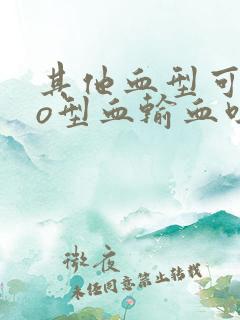 其他血型可
o型血输血
微夜
未经同意禁止转载